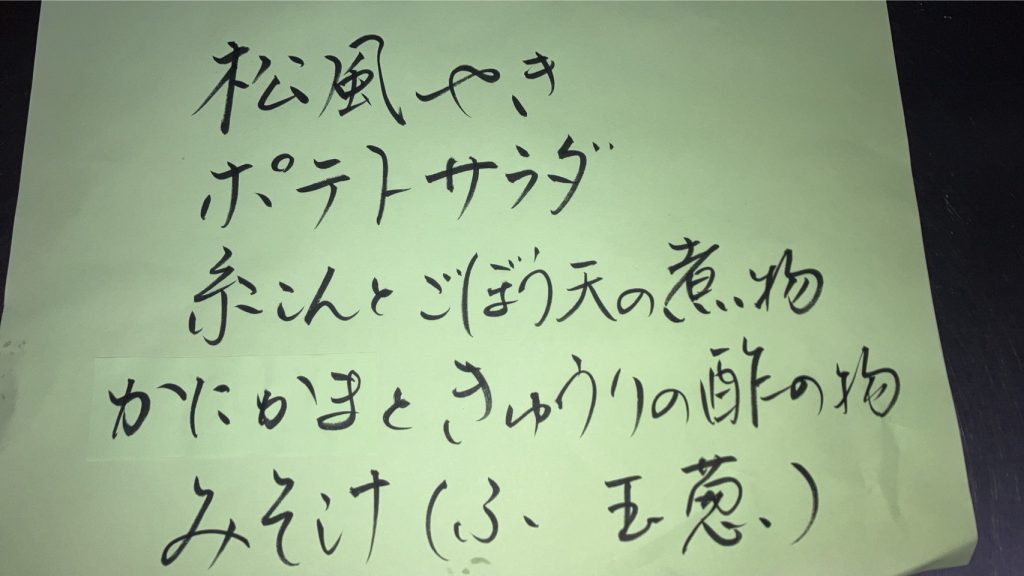 松風やき
ポテトサラダ
糸こんとごぼう天の煮物
かにかまときゅうりの酢の物
みそ汁(ふ、玉葱、)